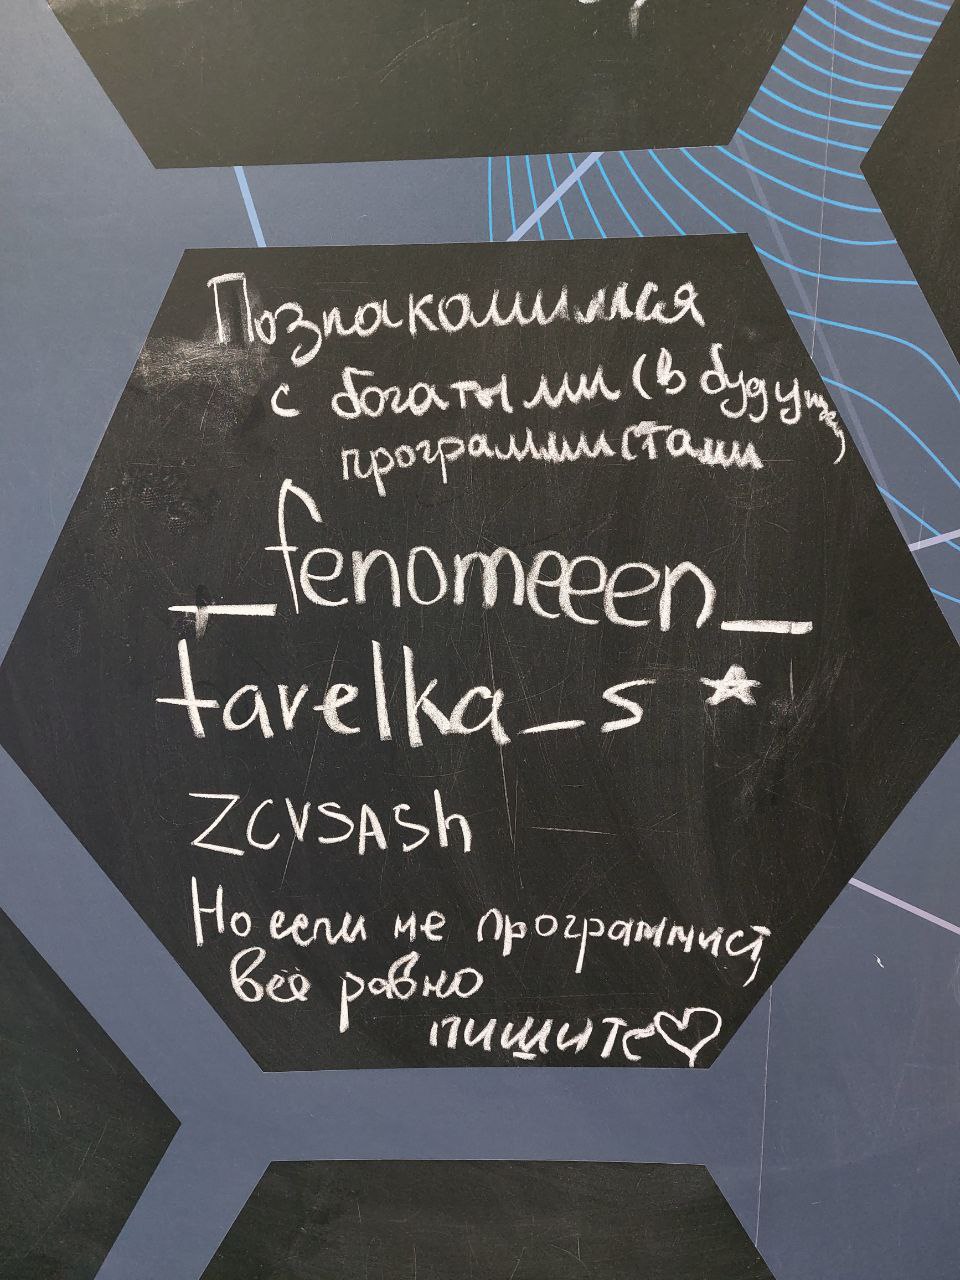 Познакомимся
с богатыми (в будущем)
программистами
_fenomeeen_
tarelka_s *
ZCVSASh
Но если не программист,
всё равно
пишите♡